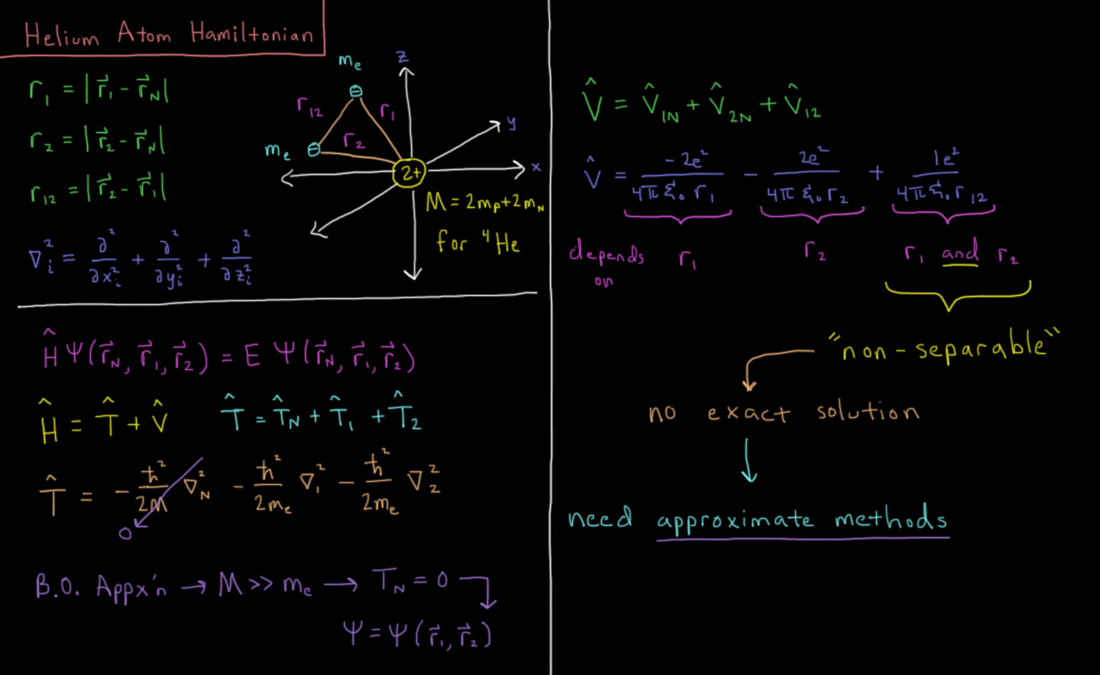 Helium Atom Hamiltonian
r₁ = |r⃗₁ - r⃗_N|
r₂ = |r⃗₂ - r⃗_N|
r₁₂ = |r⃗₂ - r⃗₁|
∇ᵢ² = ∂²/∂xᵢ² + ∂²/∂yᵢ² + ∂²/∂zᵢ²
z
mₑ
⊖
r₁₂
r₁
y
mₑ
⊖
r₂
2+
x
M = 2m_P + 2m_N
for ⁴He
Ĥ Ψ(r⃗_N, r⃗₁, r⃗₂) = E Ψ(r⃗_N, r⃗₁, r⃗₂)
Ĥ = T̂ + V̂
T̂ = T̂_N + T̂₁ + T̂₂
T̂ = - ħ²/2M ∇_N² - ħ²/2mₑ ∇₁² - ħ²/2mₑ ∇₂²
0
B.O. Appx'n → M >> mₑ → T_N = 0
Ψ = Ψ(r⃗₁, r⃗₂)
V̂ = V̂_1N + V̂_2N + V̂₁₂
V̂ = -2e²/4πξ₀r₁ - 2e²/4πξ₀r₂ + 1e²/4πξ₀r₁₂
depends on r₁ r₂ r₁ and r₂
"non-separable"
no exact solution
need approximate methods